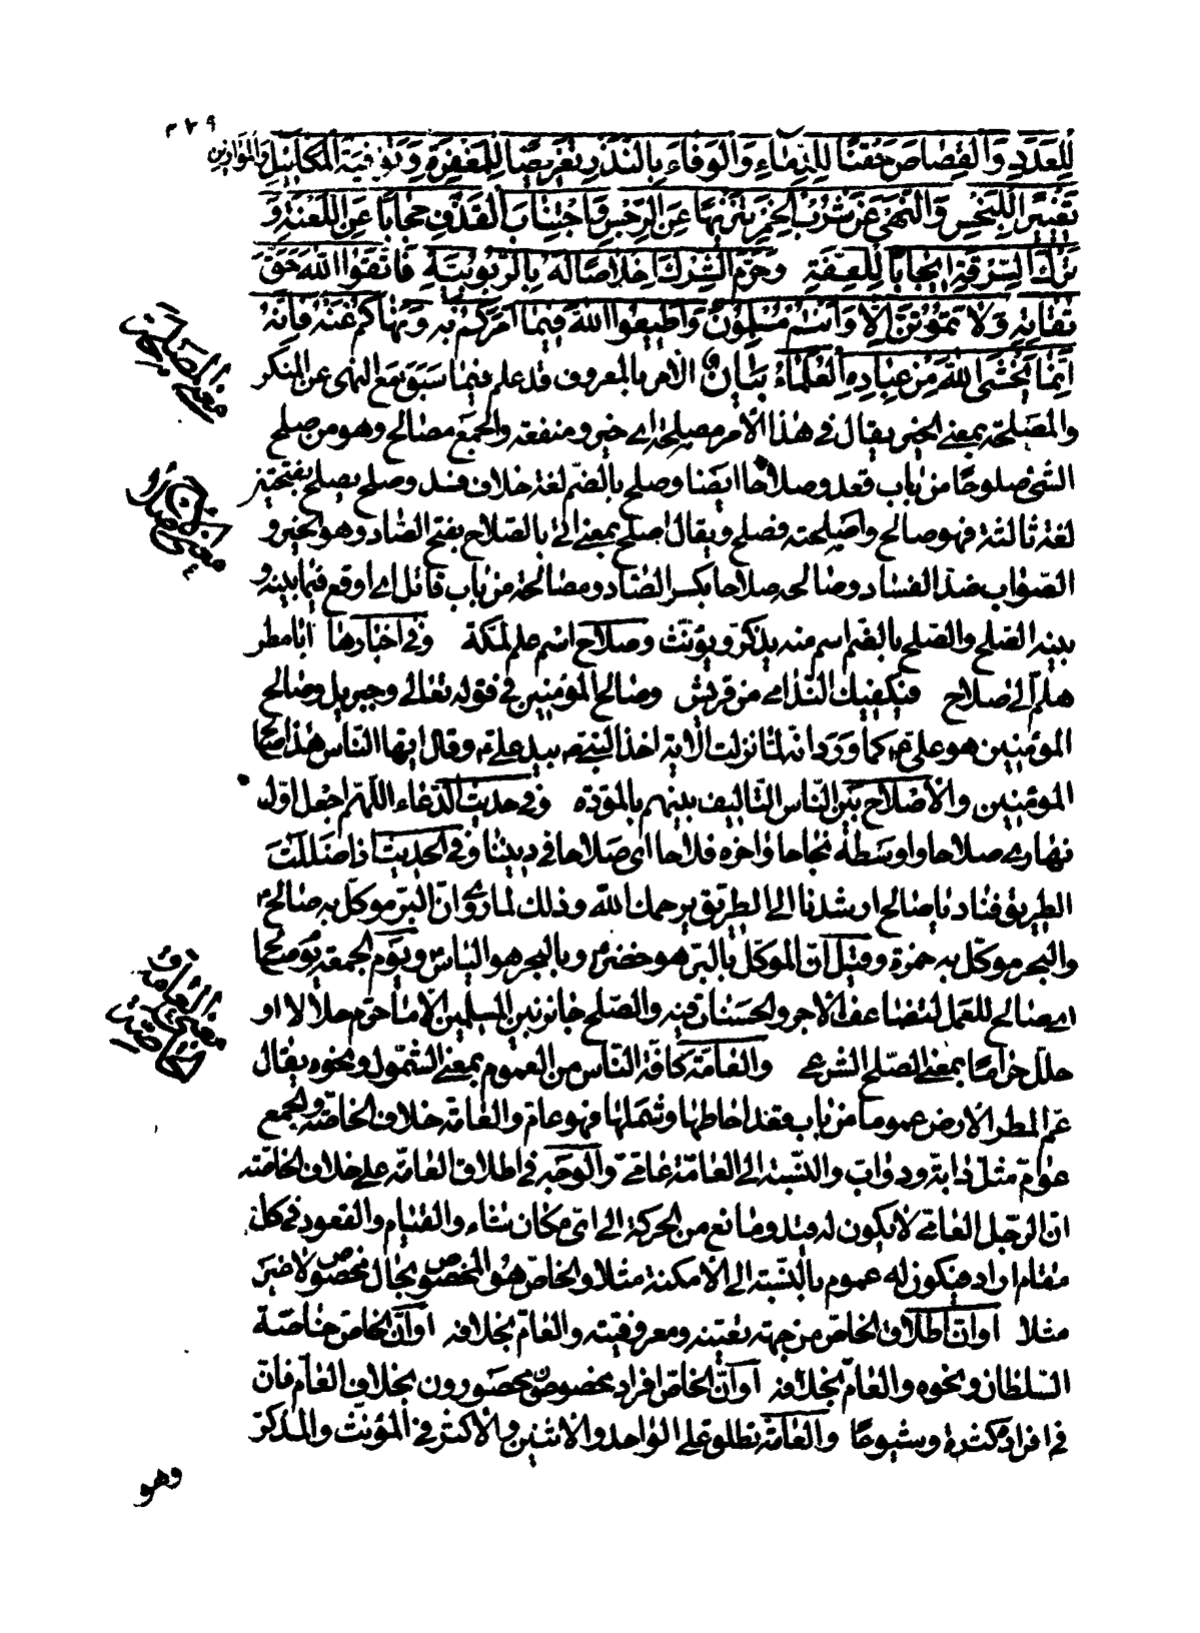 ٣٢٩
لِلعَدَدِ وَالقِصَاصَ حَقْنًا لِلدِّمَاءِ وَالوَفَاءَ بِالنَّذْرِ تَعْرِيضًا لِلمَغْفِرَةِ وَتَوْفِيَةَ المَكَائِيلِ وَالمَوَازِينِ
تَغْيِيرًا لِلبَخْسِ وَالنَّهْيَ عَنْ شُرْبِ الخَمْرِ تَنْزِيهًا عَنِ الرِّجْسِ وَاجْتِنَابَ القَذْفِ حِجَابًا عَنِ اللَّعْنَةِ وَ
تَرْكَ السِّرْقَةِ اِيجَابًا لِلعِفَّةِ وَحَرَّمَ الشِّرْكَ اِخْلَاصًا لَهُ بِالرُّبُوبِيَّةِ فَاتَّقُوا اللهَ حَقَّ
تُقَاتِهِ وَلَا تَمُوتُنَّ اِلَّا وَاَنْتُمْ مُسْلِمُونَ وَاَطِيعُوا اللهَ فِيمَا اَمَرَكُمْ بِهِ وَنَهَاكُمْ عَنْهُ فَاِنَّهُ
اِنَّمَا يَخْشَى اللهَ مِنْ عِبَادِهِ العُلَمَاءُ بَيَانٌ الأمر بالمعروف قد علم فيما سبق مع النهى عن المنكر
والمصلحة بمعنى الخير يقال فى هذا الأمر مصلحة اى خير ومنفعة والجمع مصالح وهو من صلح
الشئ صلوحا من باب قعد وصلاحا ايضا وصلح بالضم لغة خلاف فسد وصلح يصلح بفتحتين
لغة ثالثة فهو صالح واصلحته فصلح ويقال اصلح بمعنى اتى بالصلاح بفتح الصاد وهو الخير و
الصواب ضد الفساد وصالحه صلاحا بكسر الصاد ومصالحة من باب قاتل اى اوقع فيما بينه و
بينه الصلح والصلح بالضم اسم منه يذكر ويؤنث وصلاح اسم علم لمكة وفى اخبارها ابا مطر
هلم الى صلاح فيكفيك الندامى من قريش وصالح المؤمنين فى قوله تعالى وجبريل وصالح
المؤمنين هو على كما ورد انه لما نزلت الآية اخذ النبى بيد على وقال ايها الناس هذا صالح
المؤمنين والأصلاح بين الناس التأليف بينهم بالمودة وفى حديث الدعاء اللهم اجعل اول
نهارى صلاحا واوسطه نجاحا وآخره فلاحا اى صلاحا فى ديننا وفى الحديث اذا ضللت
الطريق فناد يا صالح ارشدنا الى الطريق يرحمك الله وذلك لما روى ان البر موكل به صالح
والبحر موكل به حمزة وقيل ان الموكل بالبر هو خضر وبالبحر هو الياس ويوم الجمعة يوم صالح
اى صالح للعمل لتضاعف الأجر والحسنات فيه والصلح جائز بين المسلمين الا ما حرم حلالا او
حلل حراما بمعنى الصلح الشرعى والعامة كافة الناس من العموم بمعنى الشمول ونحوه يقال
عم المطر الأرض عموما من باب قعد احاطها وشملها فهو عام والعامة خلاف الخاصة والجمع
عوام مثل دابة ودواب والنسبة الى العامة عامى والوجه فى اطلاق العامة على خلاف الخاصة
ان الرجل العامى لا يكون له قيد ومانع من الحركة الى اى مكان شاء والقيام والقعود فى كل
مقام اراد فيكون له عموم بالنسبة الى الأمكنة مثلا والخاص هو المخصوص بحال مخصوص لا غير
مثلا او ان اطلاق الخاص من جهة تعينه ومعروفيته والعام بخلافه او ان الخاص خاصة
السلطان ونحوه والعام بخلافه او ان الخاص افراد بخصوص محصورون بخلاف العام فان
فى افراده كثرة وشيوعا والعامة تطلق على الواحد والاثنين والأكثر فى المؤنث والمذكر
وهو
معنى المصلحة
معنى
معنى العامة